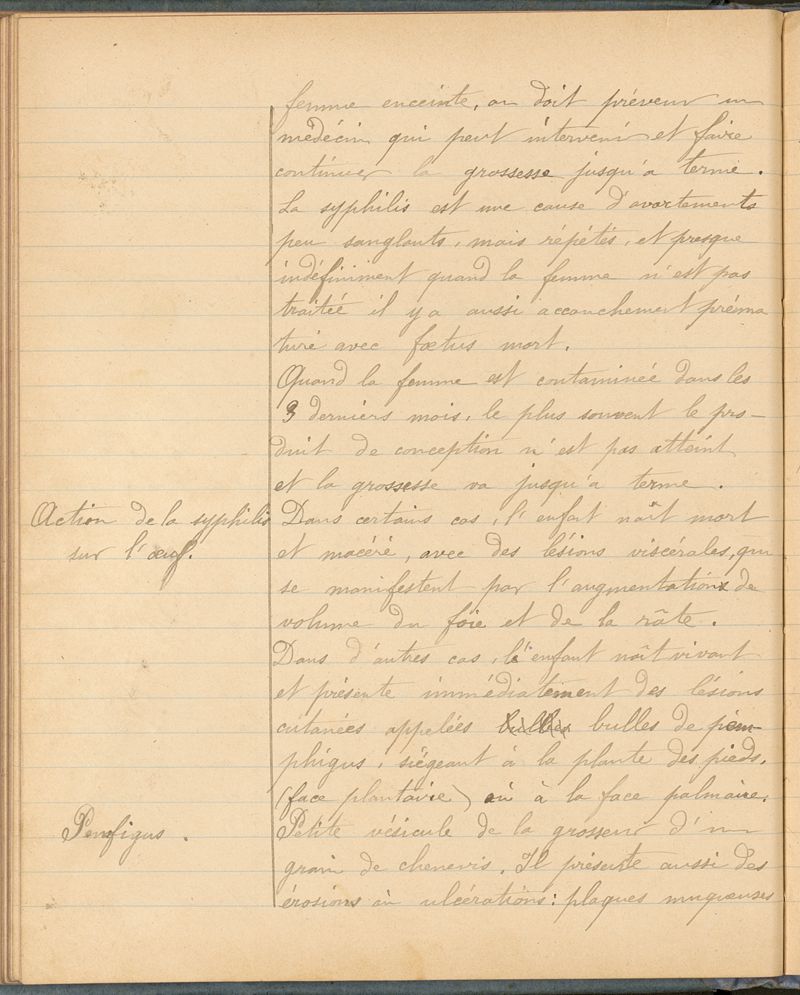 femme enceinte, on doit prévenir un
médecin qui peut intervenir et faire
continuer la grossesse jusqu'a terme.
La syphilis est une cause d'avortements
peu sanglants, mais répétés, et presque
indéfiniment quand la femme n'est pas
traitée il y a aussi accouchement préma
turé avec foetus mort.
Quand la femme est contaminée dans les
3 derniers mois, le plus souvent le pro-
duit de conception n'est pas atteint
et la grossesse va jusqu'a terme.
Action de la syphilis
sur l'œuf.
Dans certains cas, l'enfant naît mort
et macéré, avec des lésions viscérales, qui
se manifestent par l'augmentation de
volume du foie et de la râte.
Dans d'autres cas, l'enfant naît vivant
et présente immédiatement des lésions
cutanées appelées bulles bulles de pem-
phigus, siégeant à la plante des pieds.
(face plantaire) où à la face palmaire.
Pemfigus.
Petite vésicule de la grosseur d'un
grain de chenevis. Il présente aussi des
érosions où ulcérations: plaques muqueuses